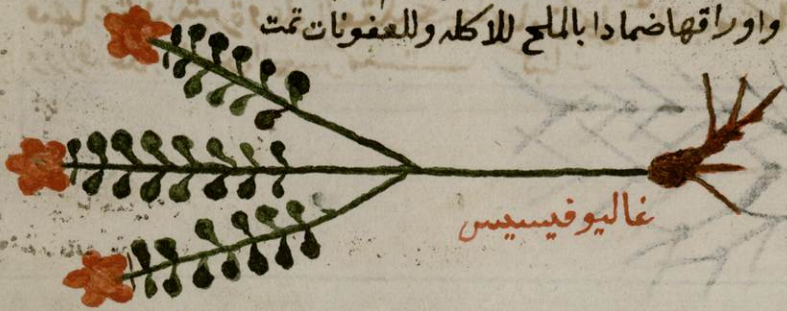 واوراقها ضمادا بالملح للاكله وللعفونات تمت
غاليوفيسيس